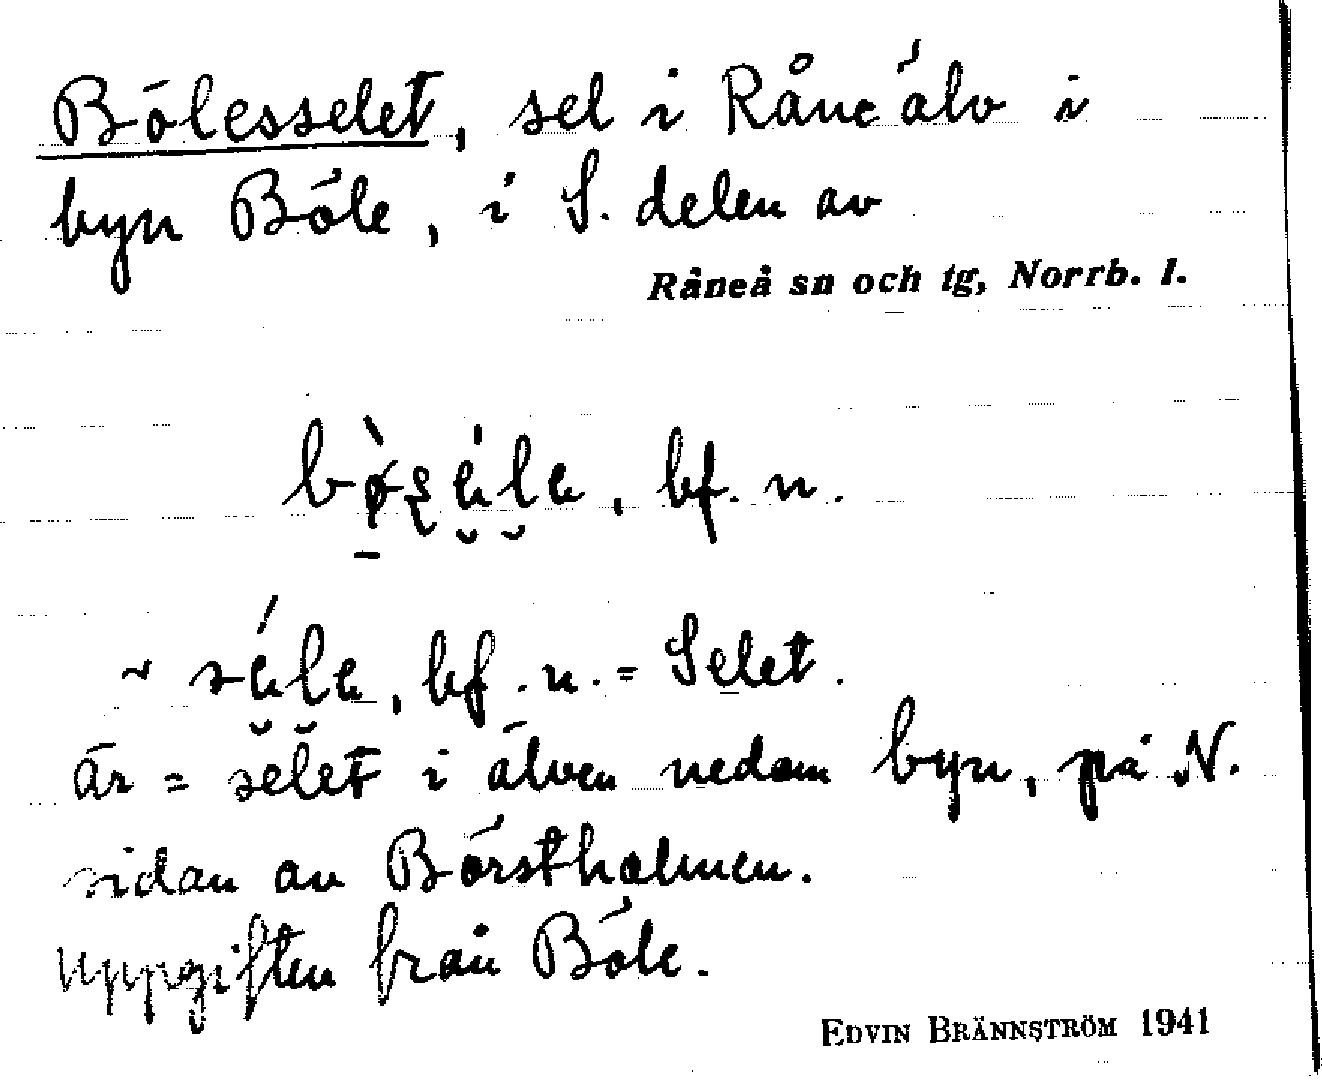 Bölesselet, sel i Råne älv i
byn Böle, i S. delen av
Råneå sn och tg, Norrb. l.
bf. n.
bf. n. = Selet.
är = selet i älven nedom byn, på N.
sidan av Börstholmen.
Uppgiften från Böle.
EDVIN BRÄNNSTRÖM 1941